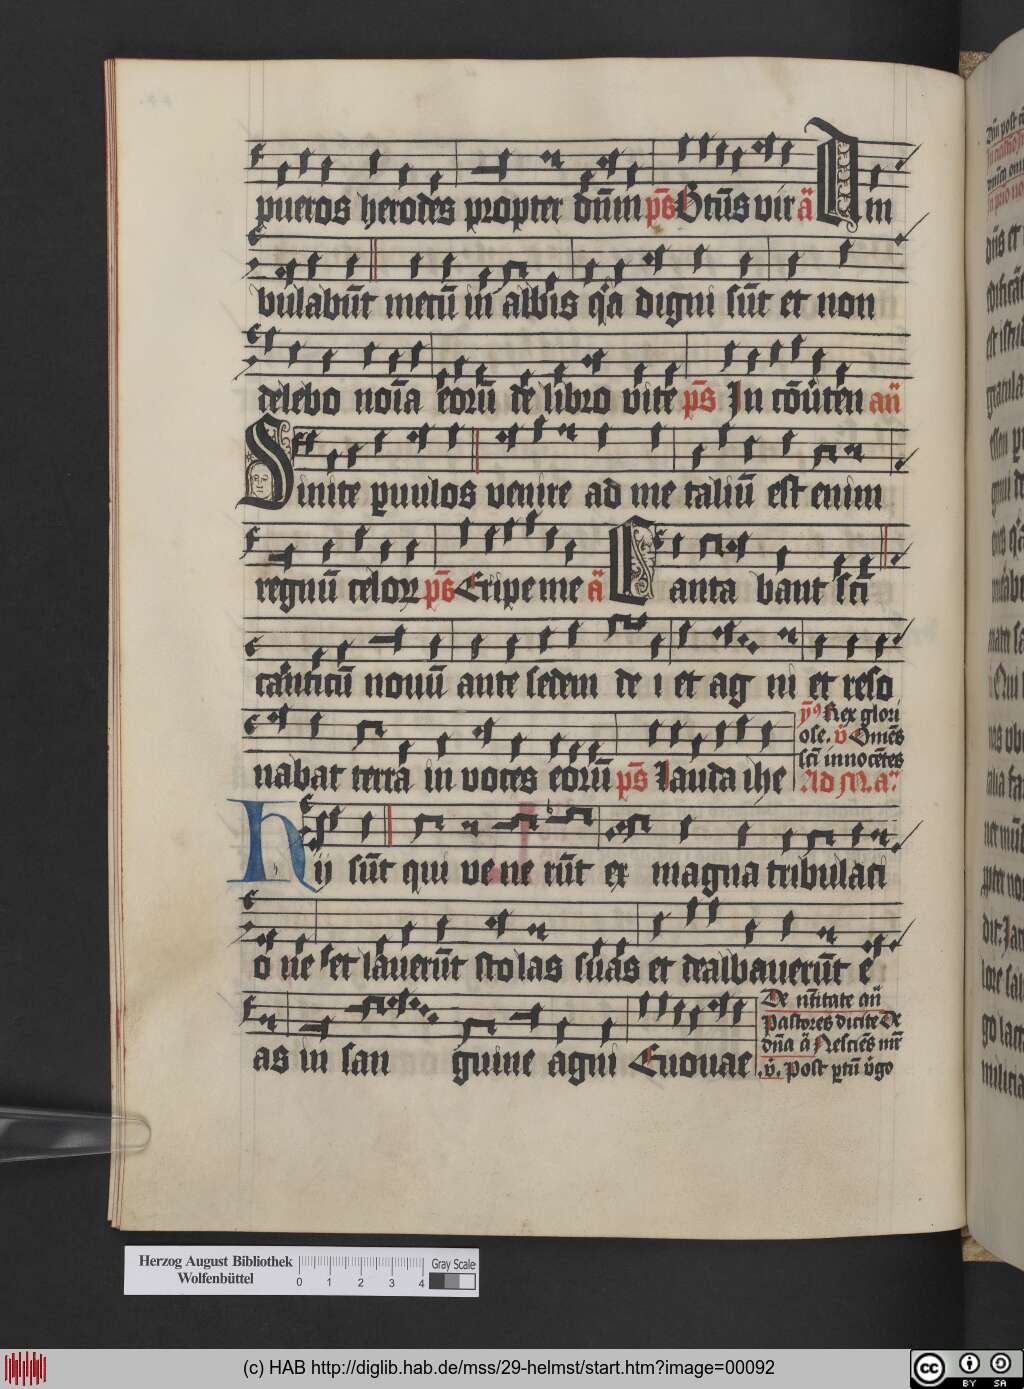 pueros herodes propter dn̄m ps̄ Btūs vir a̅ Am
bulabūt mecū in albis qͣa digni sūt et non
delebo noīa eorū de libro vite ps̄ In cōuͥten an̄
Sinite puulos venire ad me taliū est enim
regnū celoꝝ ps̄ Eripe me a̅ Canta bant sc̄i
canticū nouū ante sedem de i et ag ni et reso
nabat terra in voces eorū ps̄ Lauda ihe
ẏꝰ Rex glori
ose. v̇ Om̄es
sc̄i innocētes
Ad M. a̅
Hij sūt qui ve ne rūt ex magna tribulaci
o ne et lauerūt stolas suas et dealbauerūt e
as in san guine agni Euouae
De nt̄itate an̄
Pastores dicite De
dn̄a a̅ Nesciēs mr̄
.v̇. Post ptū v̇go
Herzog August Bibliothek
Wolfenbüttel
0 1 2 3 4
Gray Scale
(c) HAB http://diglib.hab.de/mss/29-helmst/start.htm?image=00092
cc BY SA